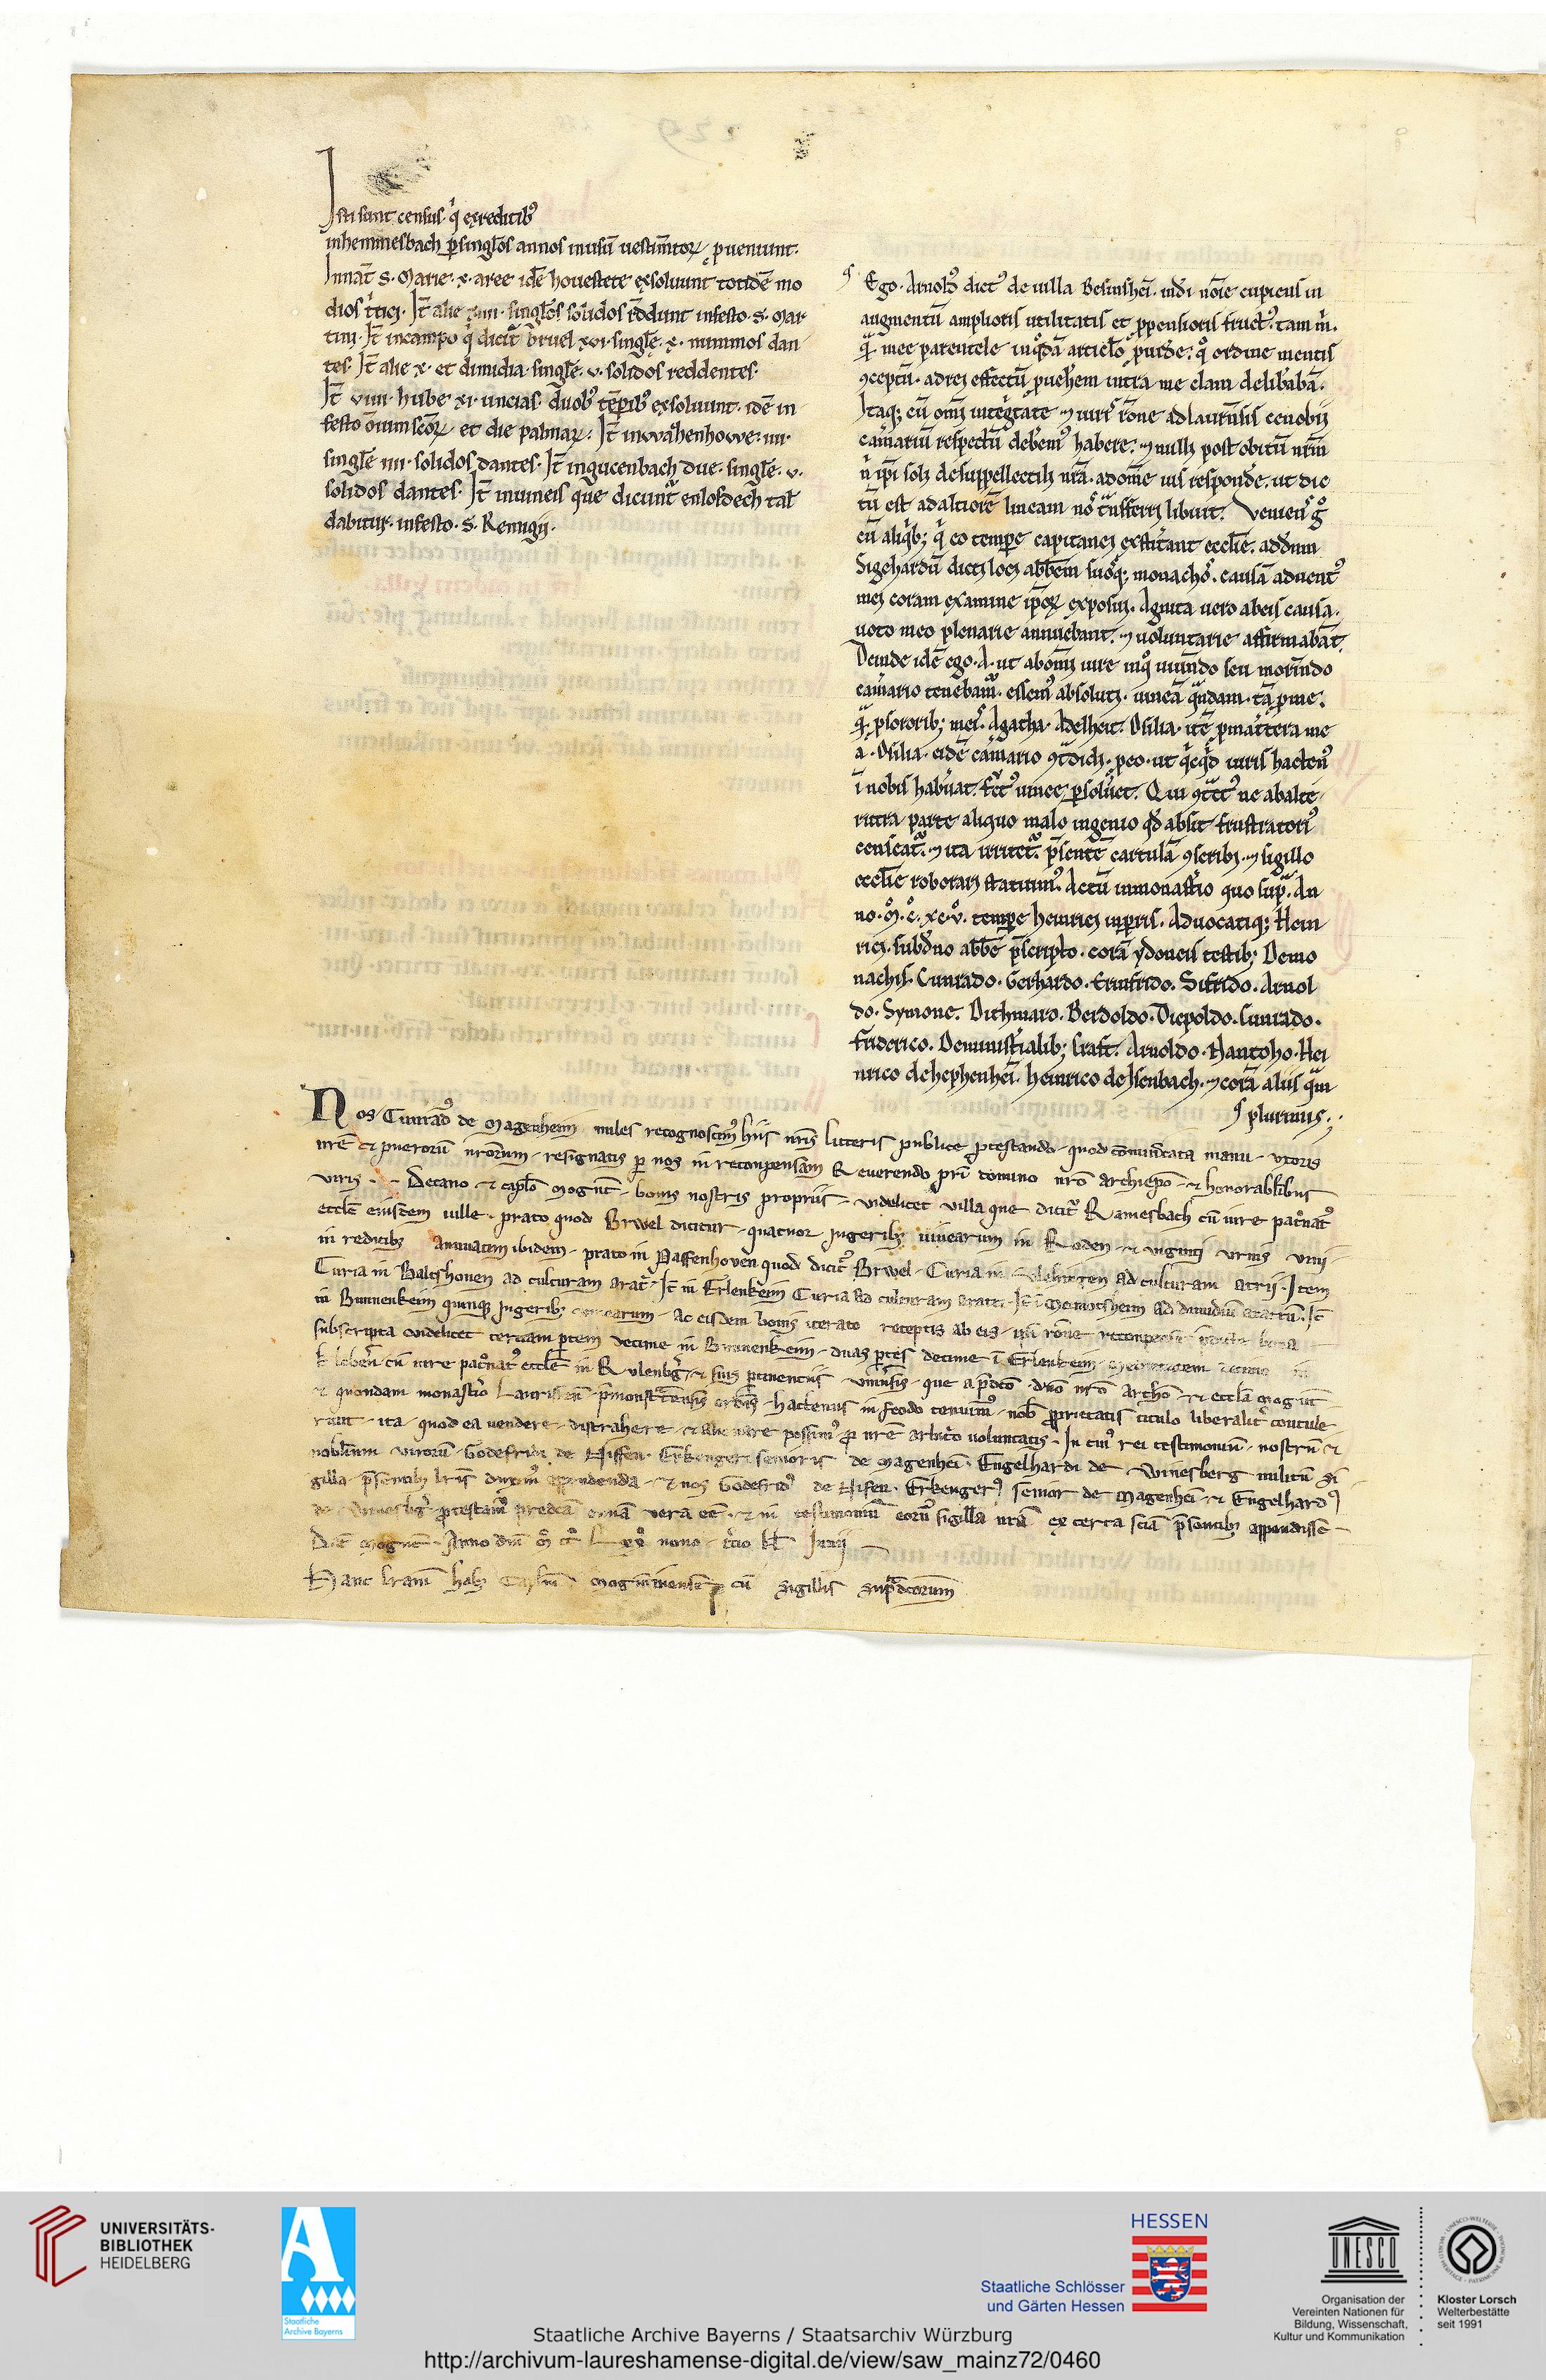 Isti sunt census q̇ ex reditib⁹
in hemmesbach p singl̄os annos in usū uestim̄toꝝ ꝓueniunt.
In nat̄ s. Marie .x. aree idē houestete exsoluunt totidē mo
dios t̓tici. It̄ alie xiiii. singl̄os solidos r̄ddunt in festo .s. Mar
tini. It̄ in campo q̇ dicit̄ bruel xvi. singl̄e .x. nummos dan
tes. It̄ alie x. et dimidia singl̄e .v. solidos reddentes.
It̄ viiii hube xi uncias duob⁹ tēpib⁹ exsoluunt. idē in
festo om̄ium sc̄oꝝ et die palmaꝝ. It̄ in wachenhowe .iiii.
singl̄e iiii solidos dantes. It̄ in gucenbach due singl̄e .v.
solidos dantes. It̄ in uineis que dicunt̄ enlosdech tal̄
dabitur in festo .s. Remigii.
Ego Arnold⁹ dict⁹ de uilla Besinshei̅. mdi̅ no̅ie cupiens in
augmentū amplioris utilitatis et ꝓpensioris fruct⁹. tam m̄.
q̄ mee parentele in q̊dā articl̄o ꝓuid̄e. q̊ ordine mentis
ꝯceptū ad rei effectū ꝓueh̄em intra me clam delib̄abā.
Itaq; cū om̄i integ̓tate ⁊ iuris r̄one ad laurn̄sis cenobii
cam̄ariū respectū deb̄em⁹ habere. ⁊ nulli post obitū nr̄m
n̄ ip̄i soli de suppellectili nr̄a ad om̄e ius respond̄e. ut dic
tū est ad altiorē lineam n̊ t̄nsferri libuit. Veniens g̊
cū aliq̇b; q̇ eo tempe capitanei exstit̄ant eccl̄ie. ad dn̄m
Sigehardū dicti loci abb̄em suosq; monachos. causā aduent⁹
mei coram examine ip̄oꝝ exposui. Agnita uero ab eis causa.
uoto meo plenarie annuebant. ⁊ uoluntarie affirmabāt.
Deinde idē ego .A. ut ab om̄i iure in q̊ uiuendo seu moriendo
cam̄ario tenebam̄. essem⁹ absoluti. uineā q̄ndam. tā p me.
q̄ p sororib; meis. Agatha. Adelheit. Osilia. itē p mat̄tera me
a. Osilia. eidē cam̄ario ꝯt̄didi. p eo. ut q̇cq̇d iuris hacten⁹
i̅ nobis habuit. fruct⁹ uinee p̄soluet. Qui ꝯt̄ct⁹ ne ab alte
rutra parte aliquo malo ingenio qd̄ absit frustratori⁹
censeat̄. ⁊ ita irritet̄. p̄sentē cartulā ꝯscribi. ⁊ sigillo
eccl̄ie roborari statuim⁹. Actū in monast̄io quo sup̄. An
no .m̊.c̊.xc.v̊. tempe heinrici inp̄ris. Aduocatiq; Hein
rici. sub dn̄o abb̄e p̄scripto. corā ydoneis testib; De mo
nachis. Cunrado. Gerhardo. Erinfrido. Sifrido. Arnol
do. Symone. Dithmaro. Berdoldo. Diepoldo. Cunrado.
Friderico. De minist̄ialib; Craft. Arnoldo. Nantoho. Hei
nrico de hephenhei̅. heinrico de Isenbach. ⁊ corā aliis q̄m
plurimis.
Nos Cunrad⁹ de Magenheim miles recognoscim⁹ hiis nr̄is litteris publice ꝓtestando quod cōmunicata manu uxoris
nr̄e et puerorū nr̄orum resignatis p nos in recompensam Reuerendo pr̄i domino nr̄o archiepō et honorabilibus
viris .. Decano et capl̄o Mogunt̄ bonis nostris propriis videlicet villa que dicit̄ Ramesbach cū iure pat̊nat⁹
eccl̄e eiusdem uille prato quod Brwel dicitur quatuor jugerib; vinearum in Roden et viginti urnis vini
in reditib; annuatim ibidem prato in Paffenhoven quod dicit̄ Brwel Curia in ad culturam atrii Item
Curia in Baltzhouen ad culturam arat̄ It̄ in Erlenkeim Curia ad culturam aratri It̄ i̅ Memotsheim ad dimidiū aratrū It̄
in Bunnenkeim quinq; jugerib; vinearum ac eisdem bonis iterato receptis ab eis r̄one recompense bona
subscripta videlicet terciam ptem decime in Bunnenkeim duas ptes decime i̅ Erlenkeim
Klebern̄ cū iure pat̊nat⁹ eccl̄e in Rulenbg̅ et suis ptinentiis uniu̅sis que a p̄dc̄o dn̄o nr̄o archiep̄o et eccl̄a Mogunt̄
et quondam monast̄io Laurissen̄ p̄monst̄tensis ordīs hactenus in feodo tenuim⁹ nob̄ ꝓprietatis titulo liberalit̄ contule
runt ita quod ea vendere distrahere et alienare possim⁹ ꝓ nr̄e arbit̄o voluntatis In cui⁹ rei testimonium nostrū et
nobilium virorū Godefridi de Niffen Erkengeri senioris de Magenhei̅ Engelhardi de Winesberg militū si
gilla p̄sentib; lr̄is duxim⁹ appendenda et nos Godefrid⁹ de Nifen Erkenger⁹ senior de Magenhei̅ et Engelhard⁹
de Winesbg̅ ꝓtestam⁹ predc̄a om̄ia vera eē et in testimoniū eorū sigilla nr̄a ex certa scīa p̄sentib; appendisse
Dat̄ Mogunt̄ Anno dn̄i m̊ cc̊ Lxx̊ nono t̄cio kl̄ Junii
Hanc lr̄am habet Capl̄m Moguntinensē cū sigillis sup̄dictorum
UNIVERSITÄTS-
BIBLIOTHEK
HEIDELBERG
Staatliche
Archive Bayerns
HESSEN
Staatliche Schlösser
und Gärten Hessen
UNESCO
Organisation der
Vereinten Nationen für
Bildung, Wissenschaft,
Kultur und Kommunikation
Kloster Lorsch
Welterbestätte
seit 1991
Staatliche Archive Bayerns / Staatsarchiv Würzburg
http://archivum-laureshamense-digital.de/view/saw_mainz72/0460